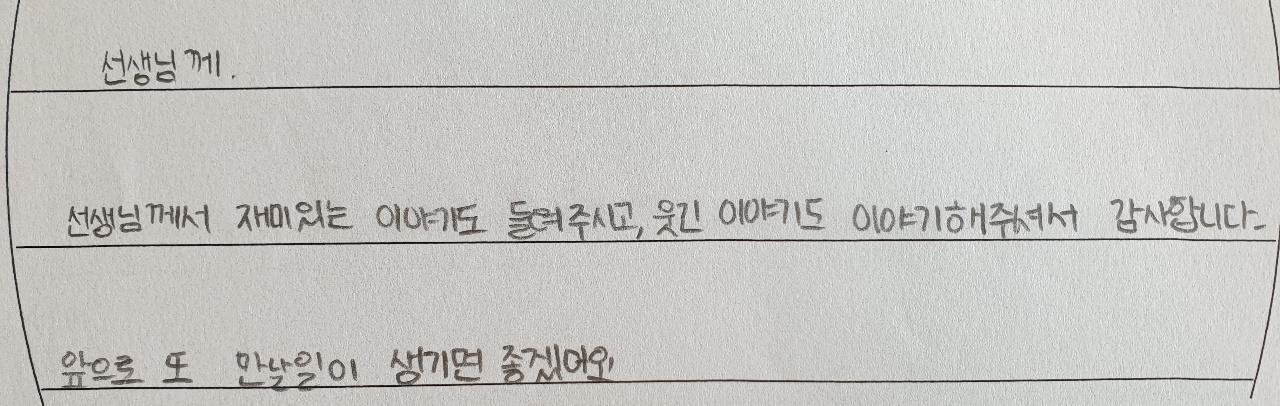 선생님께.
선생님께서 재미있는 이야기도 들려주시고, 웃긴 이야기도 이야기해주셔서 감사합니다
앞으로 또 만날일이 생기면 좋겠어요